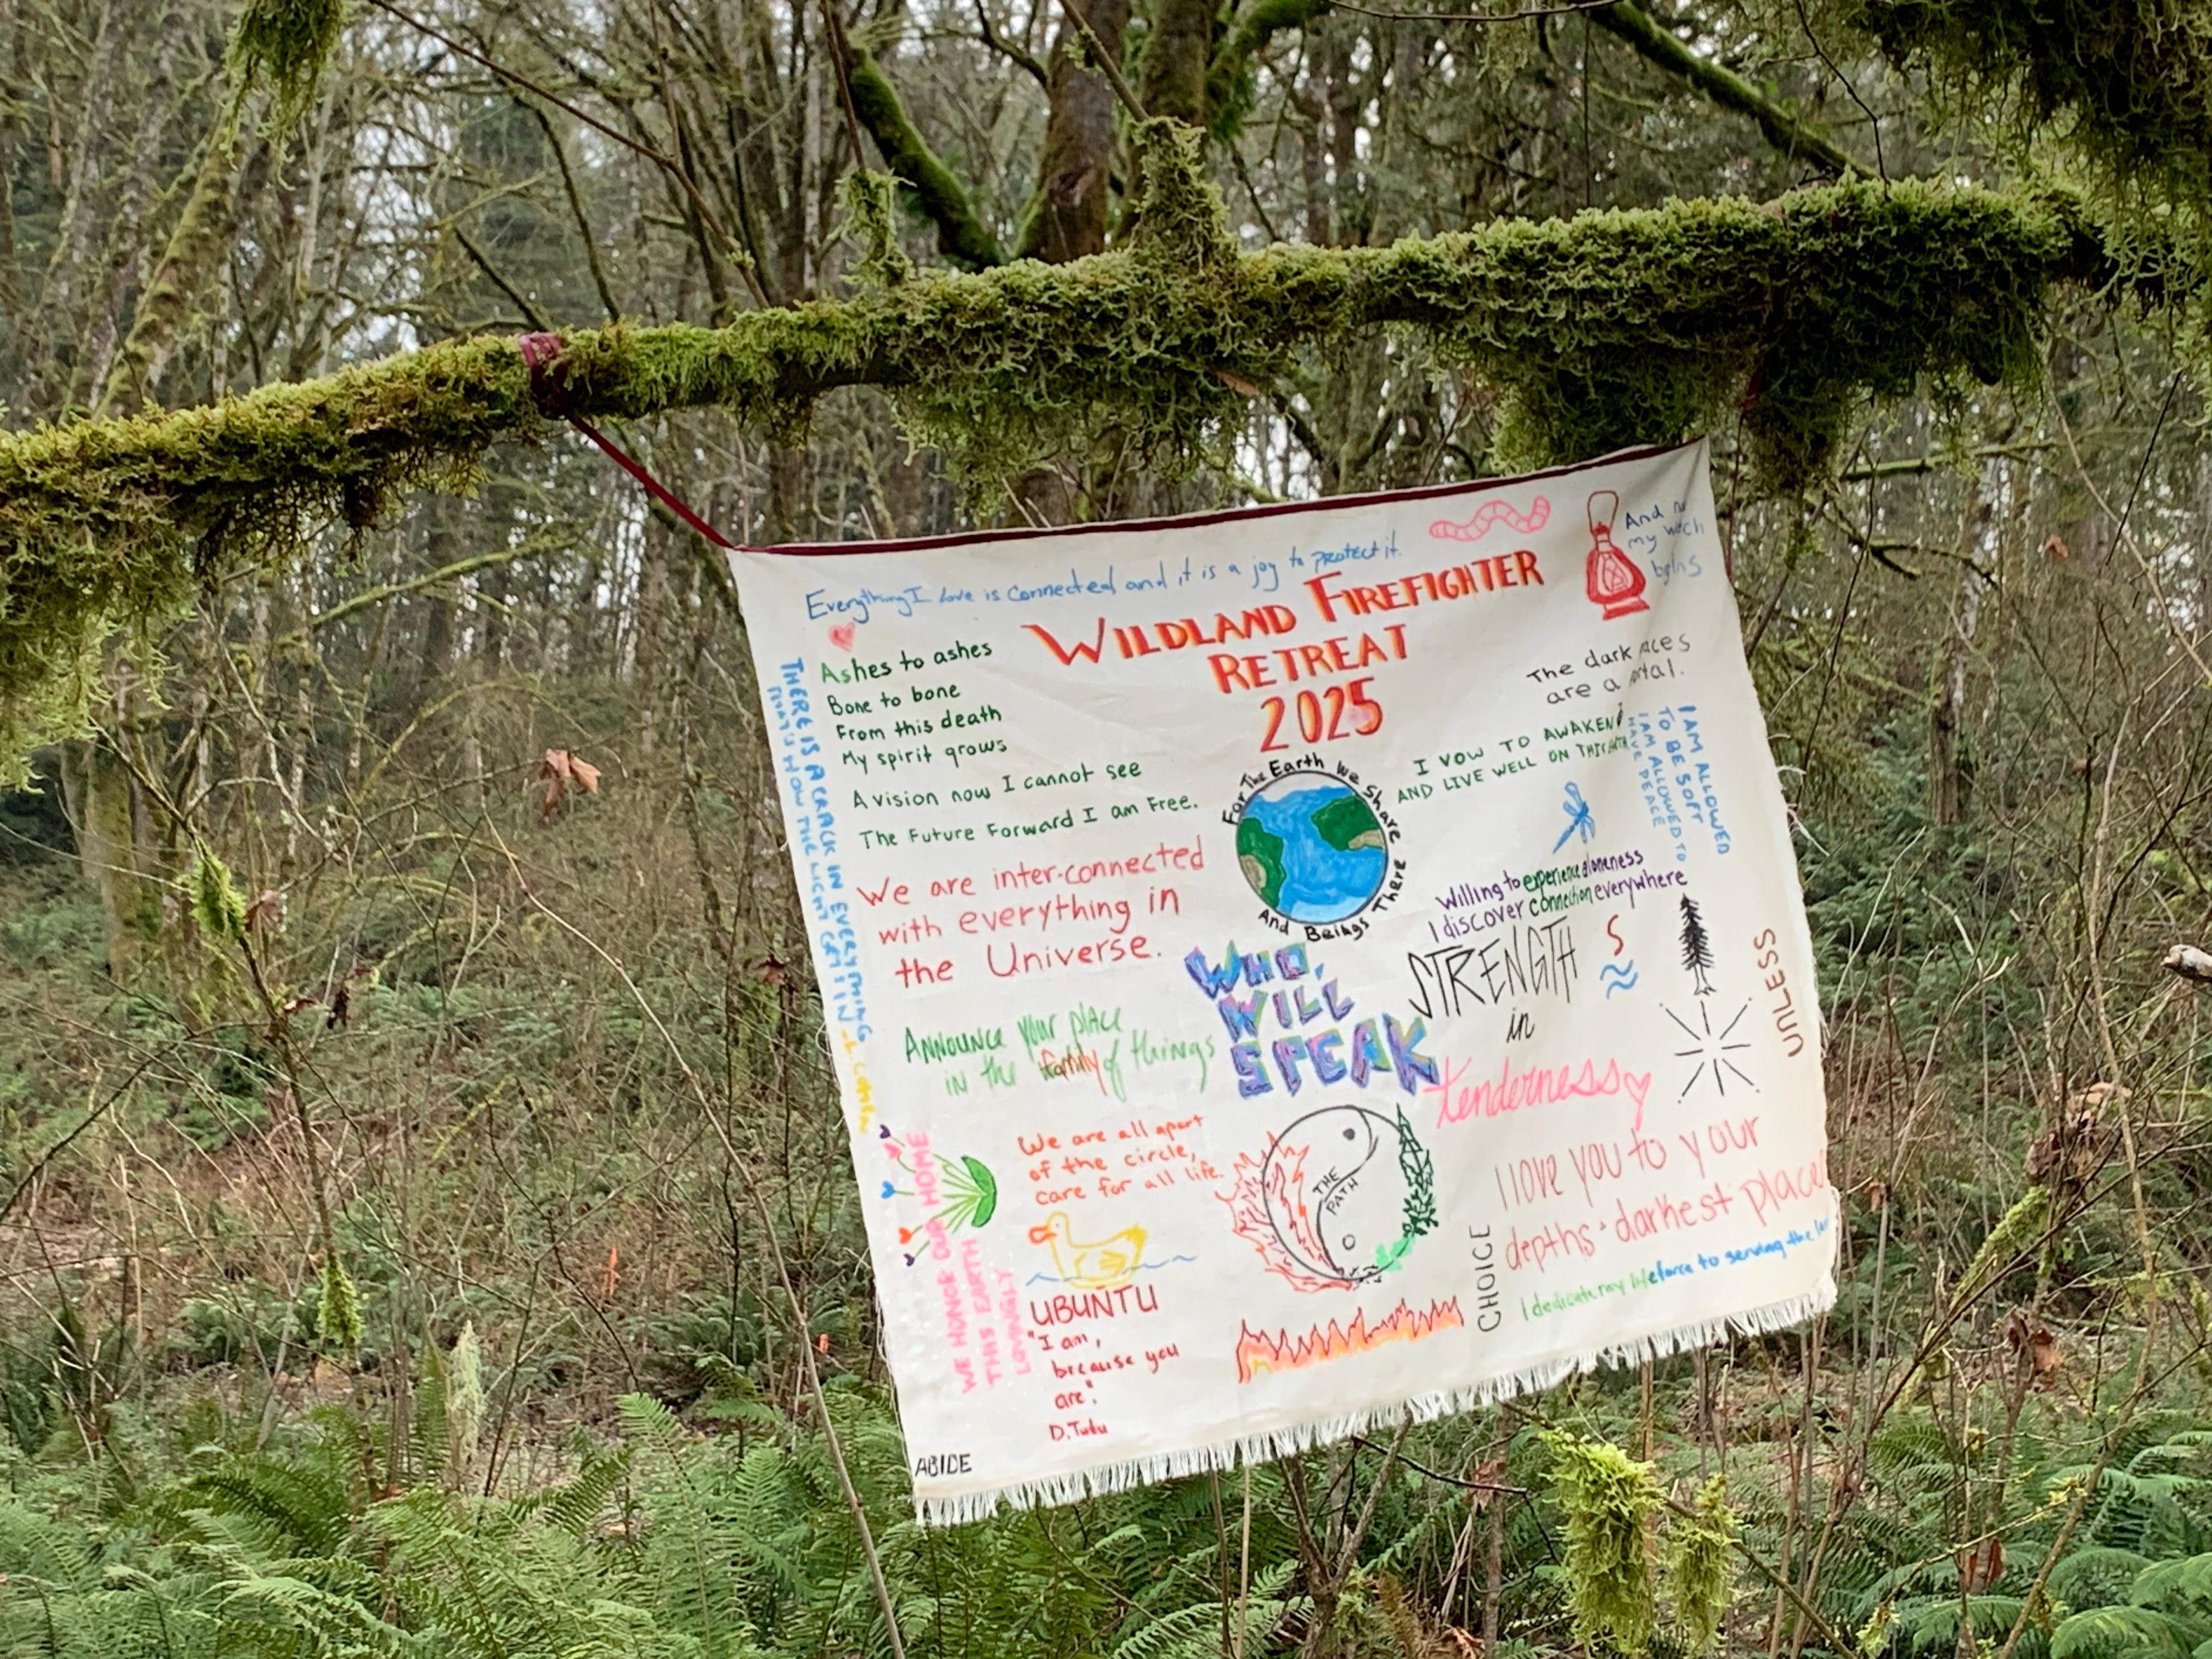 Everything I love is connected and it is a joy to protect it.
WILDLAND FIREFIGHTER
RETREAT
2025
And
my
begins
Ashes to ashes
Bone to bone
From this death
My spirit grows
A vision now I cannot see
The Future Forward I am Free.
THERE IS A CRACK IN EVERYTHING
THAT'S HOW THE LIGHT GETS IN - L. COHEN
The dark
are a
I VOW TO AWAKEN
AND LIVE WELL ON THIS
I AM ALLOWED
TO BE SOFT
I AM ALLOWED TO
HAVE PEACE
For The Earth We Share
And Beings There
We are inter-connected
with everything in
the Universe.
Willing to experience aloneness
I discover connection everywhere
WHO,
WILL
SPEAK
STRENGTH
in
tenderness
UNLESS
ANNOUNCE your place
in the family of things
We are all apart
of the circle,
care for all life.
THE
PATH
I love you to your
depths · darkest
CHOICE
I dedicate my lifeforce to serving the
WE HONOR OUR HOME
THIS EARTH
LOVINGLY
UBUNTU
"I am,
because you
are".
D. Tutu
ABIDE